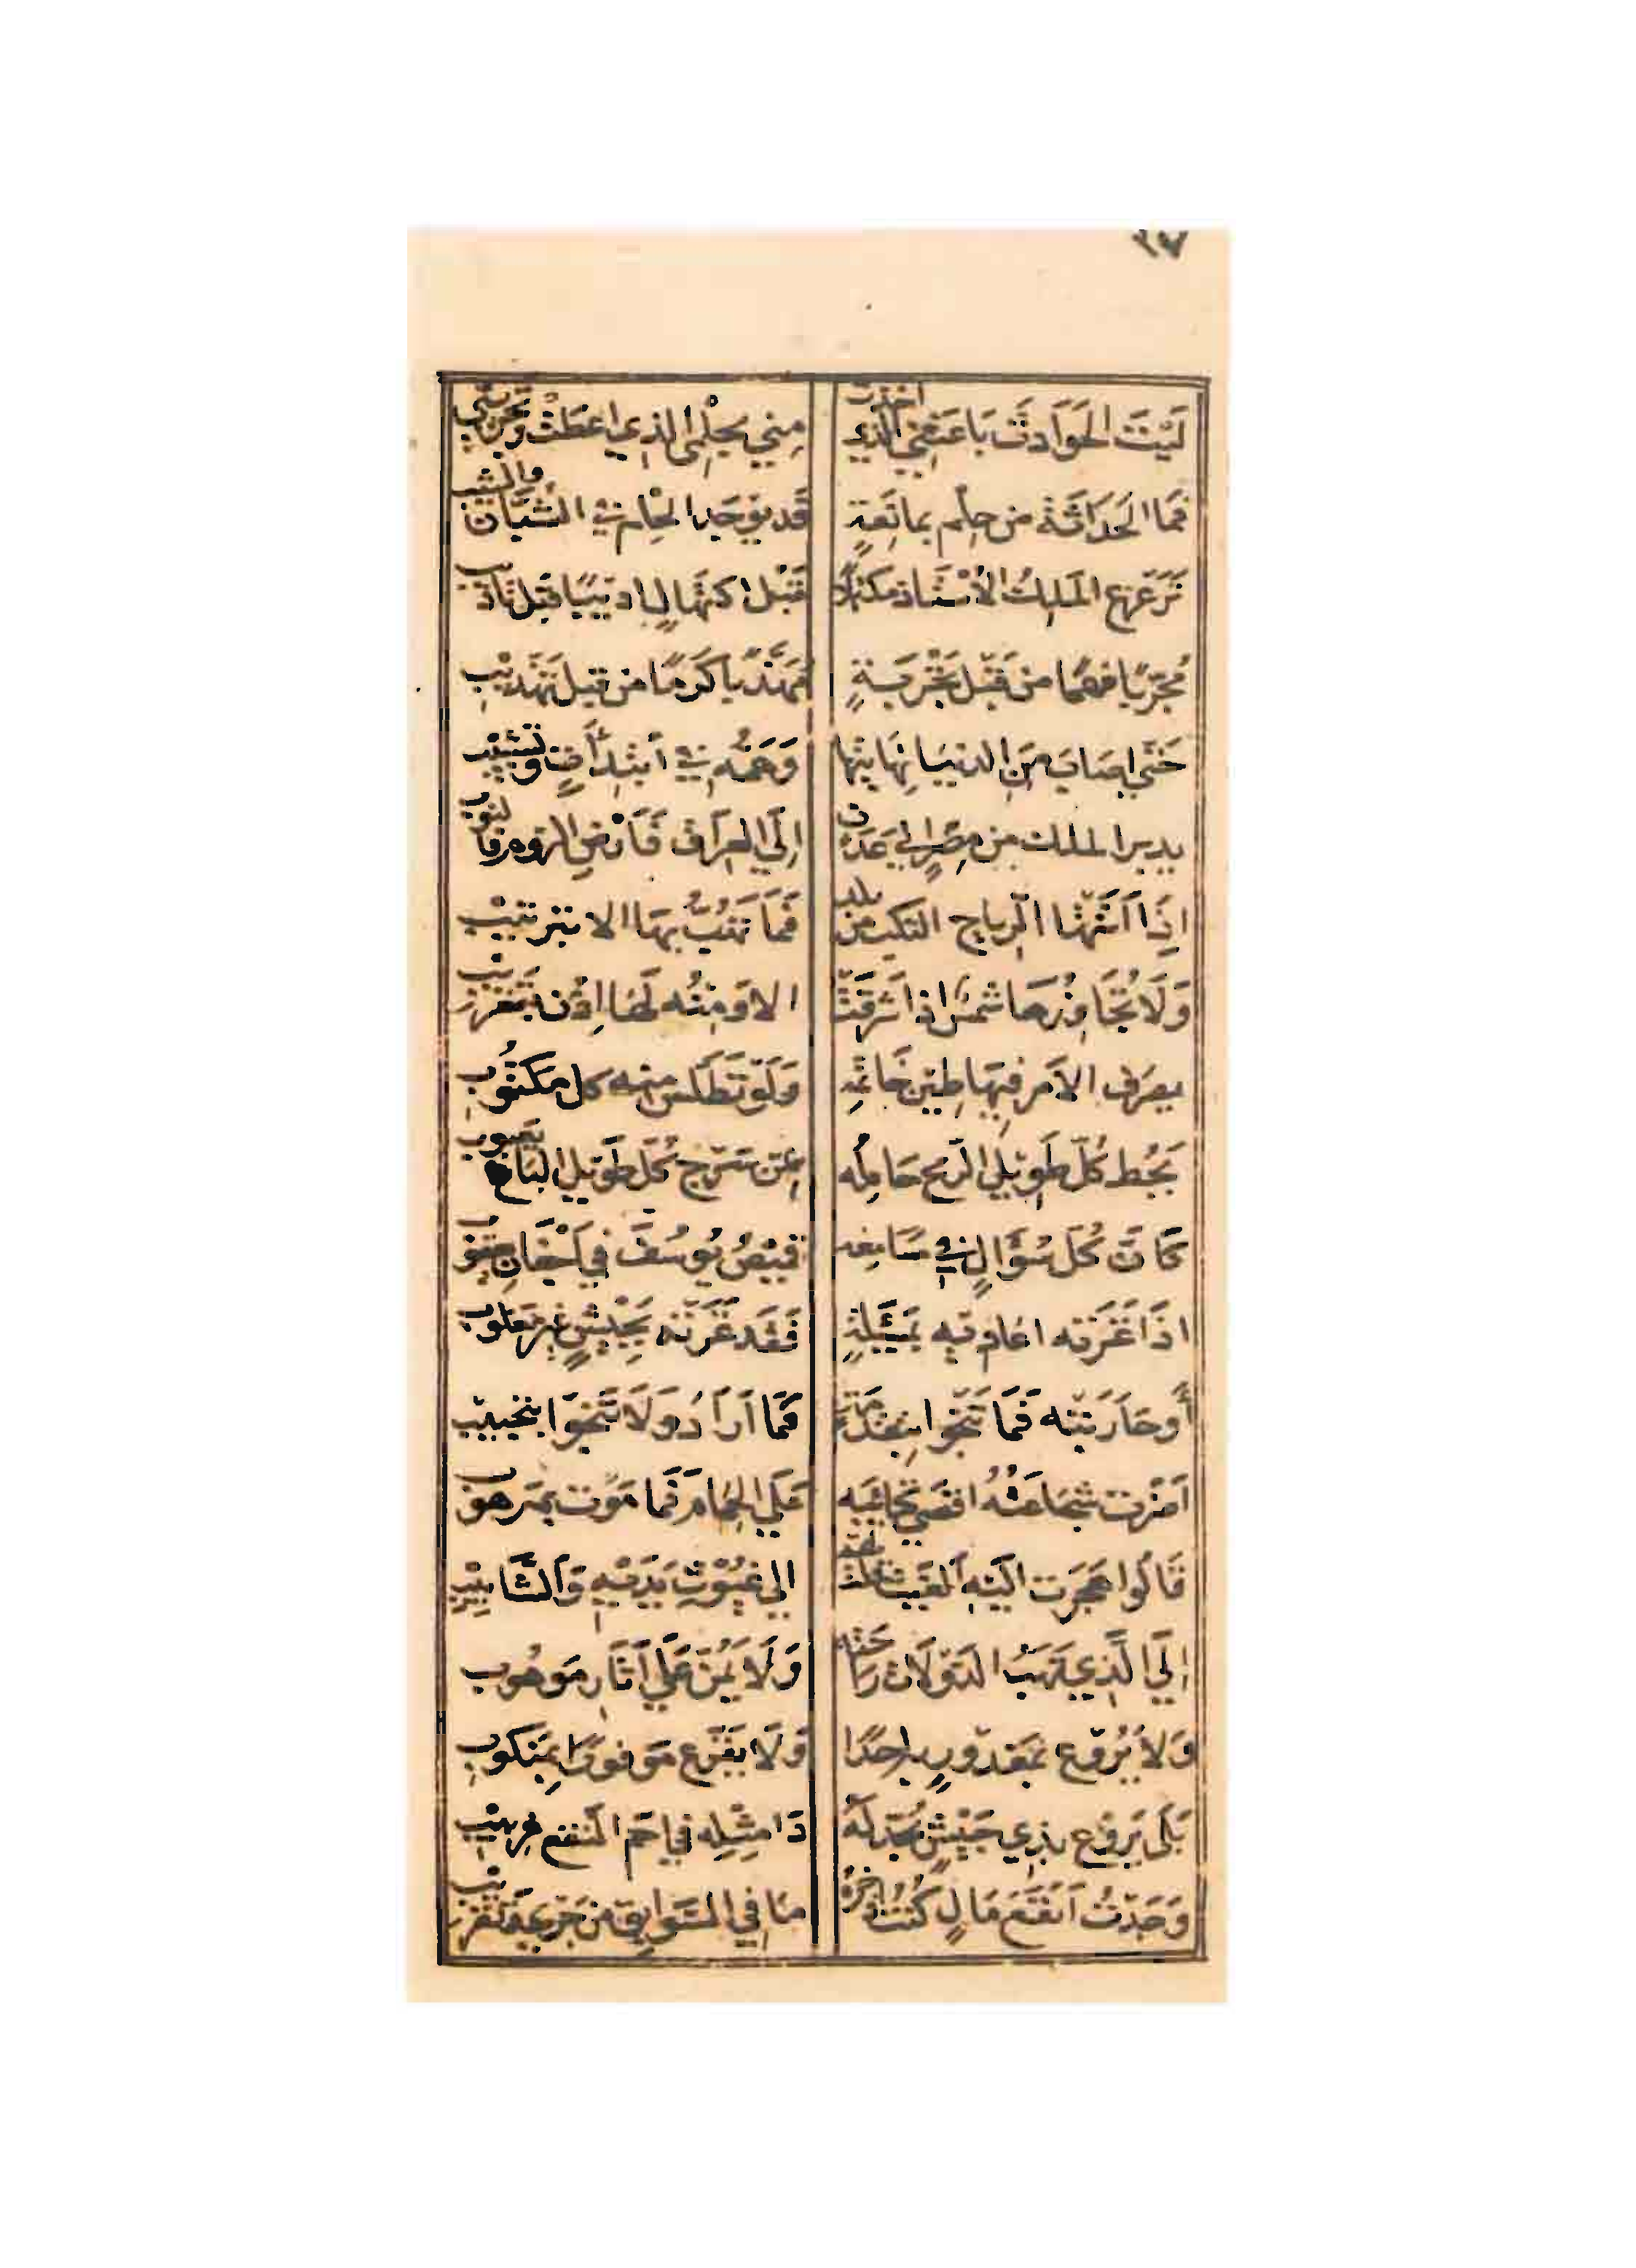 ٢٧
لَيْتَ الْحَوَادِثَ بَاعَتْنِي الَّذِي اخذت مِنِّي بِحِلْمِي الذِي اعْطَتْ وَتَجْرِيبِي
فَمَا الْحَدَاثَةُ من حِلْم بمانِعَةٍ قَد يوْجَد الحِلْم في الشُّبَّان والشيب
تَرَعْرَع المَلِكُ الأُسْتَاذ مكتهلاً قَبْل اكتِهَالٍ اديبًا قبْل تاديب
مُجَرّبًا فهمًا من قَبْل تَجْرِبَةٍ مُهَذَّبًا كَرمًا من قبل تَهْذِيْبِ
حَتّي اصَابَ مِنَ الدنيَا نِهَايتَها وَهَمُّه في ابْتِدَاآتٍ وتشبيْب
يدبر الملك من مِصْرٍ الي عَدَن اِلَي العِرَاق فَأَرْضِ الروم فالنوب
اِذَا أَتَتْهَا الرّياح النكب من بلد فَمَا تَهُبُّ بهَا الا بترتيْب
وَلَا تُجَاوِزُهَا شمْسٌ اذا شَرَقَتْ الا وَمِنْه لَهَا اِذْن بِتَغْريْب
يصَرّف الامْر فيهَا طِيْن خَاتمِهِ وَلَوْ تَطَلَّس منه كل مكتُوبِ
يَحُط كُلّ طَوِيْلِ الرّمح حَامِلُه مِن سَرْج كُلّ طَوِيْلِ البَاع يَعبوب
كَأنّ كُلَّ سُؤَالٍ في مسَامِعه قميْصُ يُوسُفَ في اَجْفَانِ يعقوب
اذَا غَزَته اعَاديه بمَسْئَلةٍ فَقَد غَزَتْه بِجَيْشٍ غير مَغلوب
أَو حَارَبَتْه فَمَا تَنْجُوا بتقدمَة ممَّا اَرَادَ وَلَا تَنْجُوَا بتجبيب
اَضْرت شجَاعَتُهُ اقصَي كتائِبه عَلَي الحِمَام فَمَا مَوْت بمَرهوب
قَالُوا هَجَرت الَيْه الغَيْث قلت لهم الي غُيُوْثِ يَدَيْهِ وَالشَّابيْبِ
اِلَي الَّذِي تَهَبُ الدَّوْلَات رَاحَتُه وَلَا يَمُنّ عَلَي اَثَارِ مَوهُوب
وَلاَ يُرَوّع بمَغدُورٍ به احَدًا وَلَا يفَزّع مَوفورًا بمَنكوب
بَلَي يَروّع بِذِي جَيْشٍ يُجَدّلُهُ ذَا مِثْلِه فِي اَحَمّ النَّقْع غِربيْبِ
وَجَدْتُ اَنْفَعَ مَالٍ كُنْتُ اذخره مَا فِي السَّوَابِق مِن جَرْي وَتقريْب